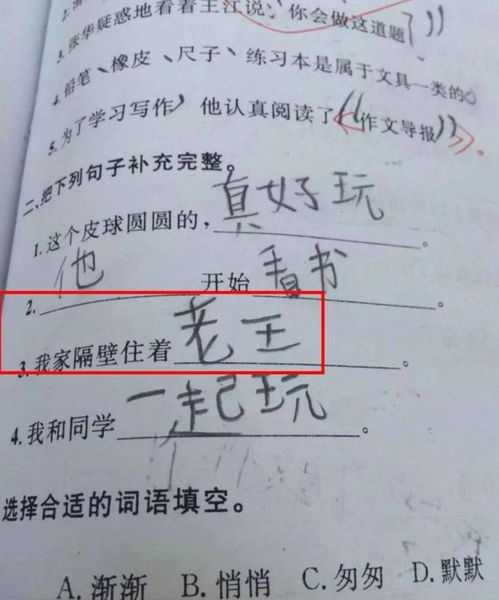 3.张华疑惑地看着王江说:你会做这道题?”
4.铅笔、橡皮、尺子、练习本是属于文具一类的。
5.为了学习写作,他认真阅读了《作文导报》。
二、把下列句子补充完整。
1.这个皮球圆圆的,真好玩。
2.他开始看书。
3.我家隔壁住着老王。
4.我和同学一起玩。
选择合适的词语填空。
A.渐渐 B.悄悄 C.匆匆 D.默默